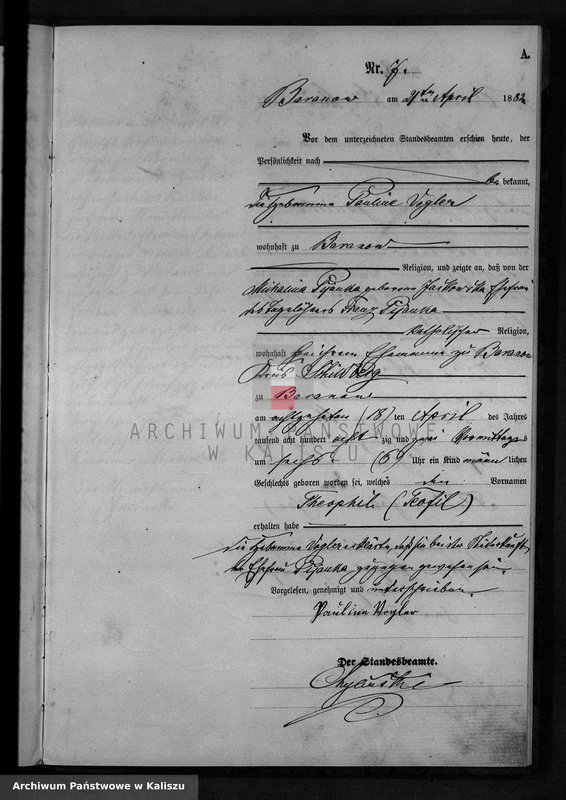 A.
Nr. 7.
Baranow am 21ten April 1882
Vor dem unterzeichneten Standesbeamten erschien heute, der
Persönlichkeit nach
be kannt,
die Hebamme Pauline Vogler
wohnhaft zu Baranow
Religion, und zeigte an, daß von der
Michalina Pisanka geborenen Ehefrau
des Tagelöhners Franz Pisanka
katholischer Religion,
wohnhaft bei ihrem Ehemanne zu Baranow
Kreis Schildberg
zu Baranow
am achtzehnten (18) ten April des Jahres
tausend acht hundert acht zig und zwei Vormittags
um sechs (6) Uhr ein Kind männ lichen
Geschlechts geboren worden sei, welches den Vornamen
Theophil (Teofil)
erhalten habe
Die Hebamme Vogler erklärte, daß sie bei der Niederkunft
der Ehefrau Pisanka zugegen gewesen sei.
Vorgelesen, genehmigt und unterschrieben.
Pauline Vogler
Der Standesbeamte.
ARCHIWUM PAŃSTWOWE
W KALISZU
Archiwum Państwowe w Kaliszu